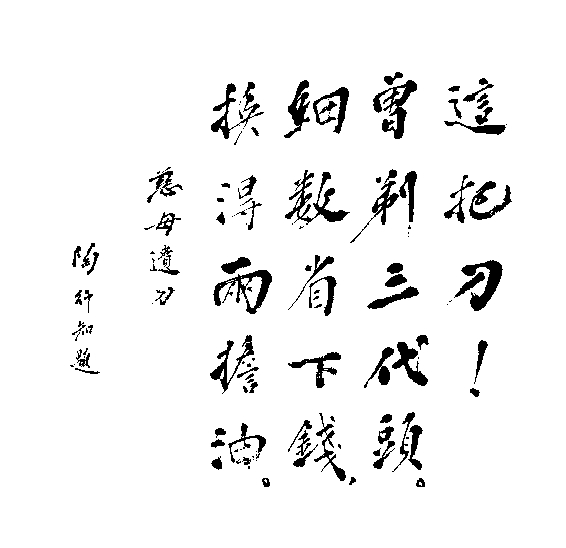 這把刀！
曾剃三代頭。
細數省下錢，
換得兩擔油。
慈母遺刀
陶行知題